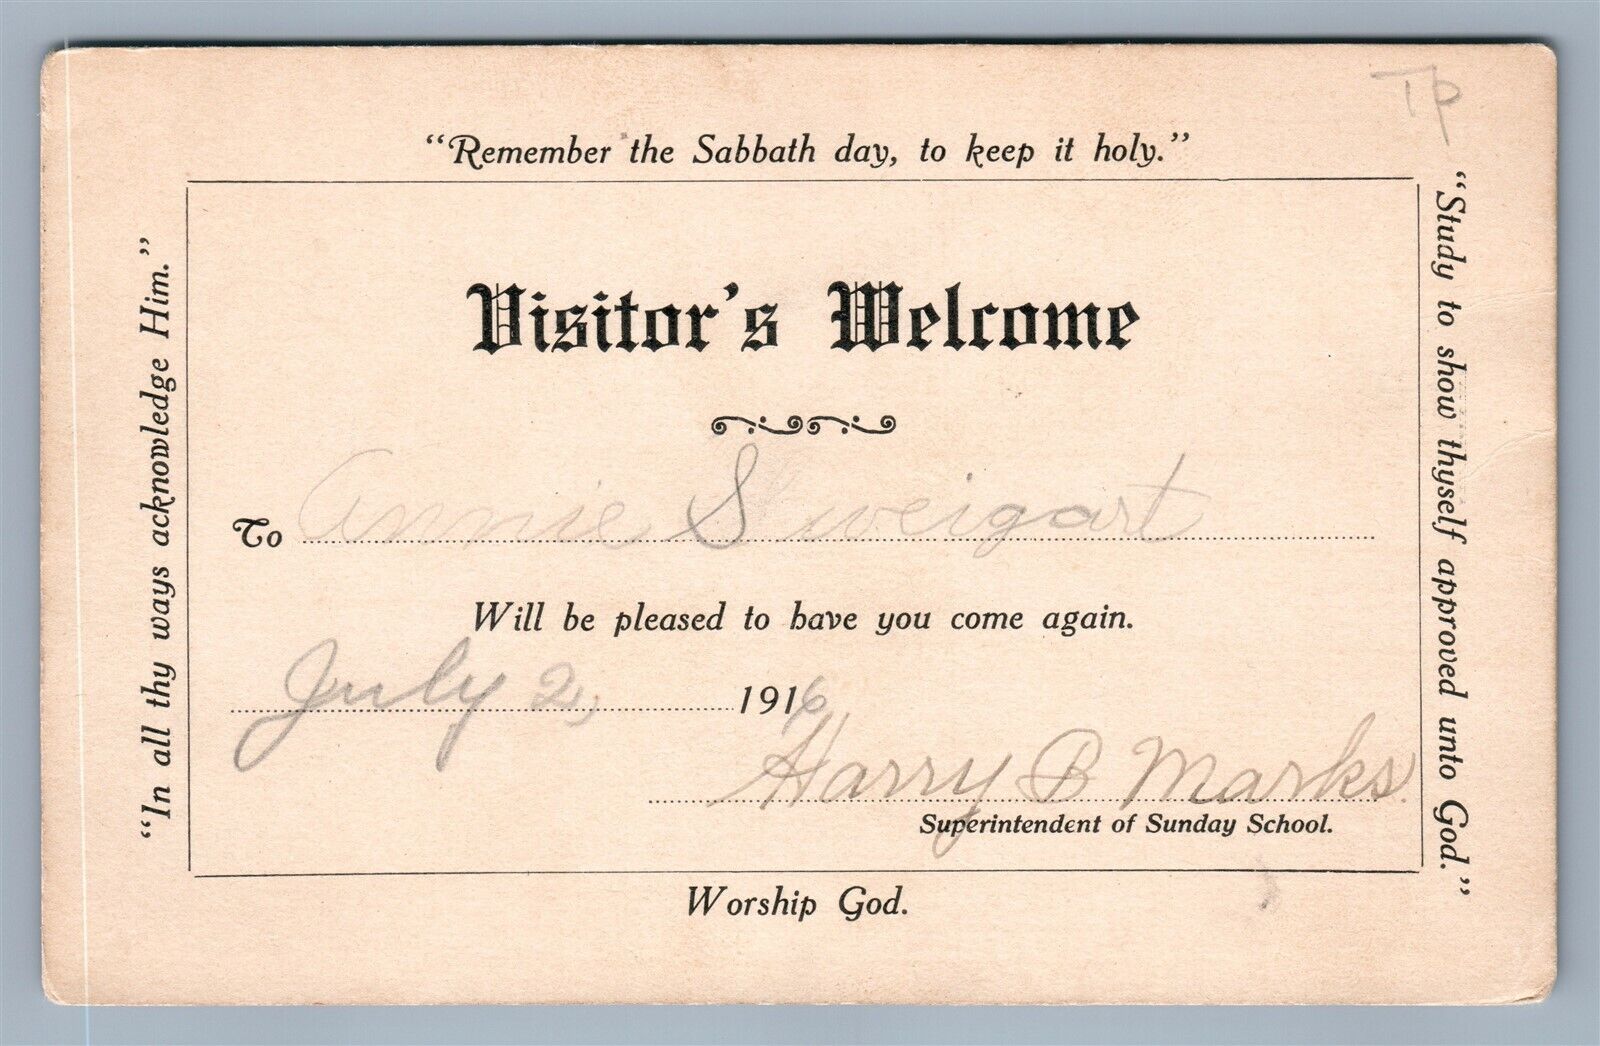 TP
"Remember the Sabbath day, to keep it holy."
"In all thy ways acknowledge Him."
"Study to show thyself approved unto God."
Visitor's Welcome
To Annie Sweigart
Will be pleased to have you come again.
July 2, 1916
Harry B Marks
Superintendent of Sunday School.
Worship God.